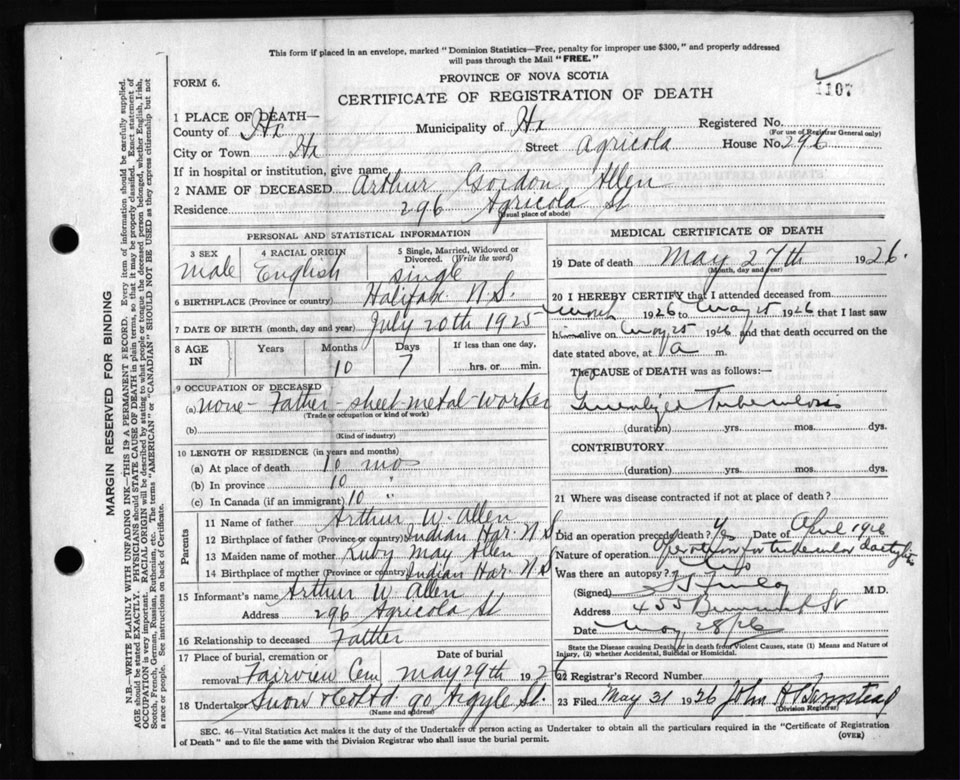 This form if placed in an envelope, marked "Dominion Statistics—Free, penalty for improper use $300," and properly addressed
will pass through the Mail "FREE."
PROVINCE OF NOVA SCOTIA
FORM 6.
CERTIFICATE OF REGISTRATION OF DEATH
1107
1 PLACE OF DEATH—
County of Hx Municipality of Hx Registered No.
(For use of Registrar General only)
City or Town Hx Street Agricola House No. 296
If in hospital or institution, give name
2 NAME OF DECEASED Arthur Gordon Allen
Residence 296 Agricola St
(usual place of abode)
PERSONAL AND STATISTICAL INFORMATION
3 SEX Male
4 RACIAL ORIGIN English
5 Single, Married, Widowed or Divorced. (Write the word) Single
6 BIRTHPLACE (Province or country) Halifax N.S.
7 DATE OF BIRTH (month, day and year) July 20th 1925
8 AGE IN Years Months 10 Days 7 If less than one day, hrs. or min.
9 OCCUPATION OF DECEASED
(a) none - Father - sheet-metal-worker
(Trade or occupation or kind of work)
(b)
(Kind of industry)
10 LENGTH OF RESIDENCE (in years and months)
(a) At place of death 10 mos
(b) In province 10 "
(c) In Canada (if an immigrant) 10 "
Parents
11 Name of father Arthur W. Allen
12 Birthplace of father (Province or country) Indian Har. N.S
13 Maiden name of mother Ruby May Allen
14 Birthplace of mother (Province or country) Indian Har. N.S
15 Informant's name Arthur W Allen
Address 296 Agricola St
16 Relationship to deceased Father
17 Place of burial, cremation or removal Fairview Cem Date of burial May 29th 1926
18 Undertaker Snow & Co Ltd 90 Argyle St.
(Name and address)
MEDICAL CERTIFICATE OF DEATH
19 Date of death May 27th 1926.
(Month, day and year)
20 I HEREBY CERTIFY that I attended deceased from
March 1926 to May 25 1926 that I last saw
him alive on May 25 1926 and that death occurred on the
date stated above, at a m.
The CAUSE of DEATH was as follows:—
Generalized Tuberculosis
(duration) yrs. mos. dys.
CONTRIBUTORY
(duration) yrs. mos. dys.
21 Where was disease contracted if not at place of death?
Did an operation precede death? Yes Date of April 1926
Nature of operation Operation for tubercular dactylitis
Was there an autopsy? No
(Signed) M.D.
Address 455 St
Date May 28/26
State the Disease causing Death, or in death from Violent Causes, state (1) Means and Nature of
Injury, (2) whether Accidental, Suicidal or Homicidal.
22 Registrar's Record Number
23 Filed May 31 1926 John A Barnstead
(Division Registrar)
SEC. 46—Vital Statistics Act makes it the duty of the Undertaker or person acting as Undertaker to obtain all the particulars required in the "Certificate of Registration
of Death" and to file the same with the Division Registrar who shall issue the burial permit.
(OVER)
MARGIN RESERVED FOR BINDING
N.B.—WRITE PLAINLY WITH UNFADING INK—THIS IS A PERMANENT RECORD. Every item of information should be carefully supplied.
AGE should be stated EXACTLY. PHYSICIANS should STATE CAUSE OF DEATH in plain terms, so that it may be properly classified. Exact statement of
OCCUPATION is very important. RACIAL ORIGIN will be described by stating to what people or tongue the deceased person belonged, whether English, Irish,
Scotch, French, German, Russian, Ruthenian, etc. The terms "AMERICAN" or "CANADIAN" SHOULD NOT BE USED as they express citizenship but not
a race or people. See instructions on back of Certificate.